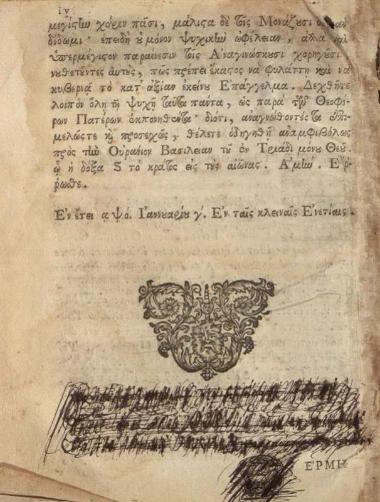 ιν
μεγίστlω χάριν πᾶσι, μάλιστα δὲ τοῖς Μονάζουσι
δίδωμι· ἐπειδὴ οὐ μόνον ψυχικlω ὠφέλειαν, ἀλλὰ καὶ
ὑπερμέγιστον παραίνεσιν τοῖς Ἀναγινώσκουσι χορηγῆσι
νυθετῶντες αὐτοὺς, πῶς πρέπει ἕκαστος νὰ φυλάττῃ καὶ νὰ
κυβερνᾷ τὸ κατ᾽ ἀξίαν ἐκείνου Ἐπάγγελμα. Δεχθῆτε
λοιπὸν ὅλῃ τῇ ψυχῇ ταῦτα πάντα, ὡς παρὰ τῶν Θεοφό-
ρων Πατέρων ἐκπονηθέντα· διότι, ἀναγνώθοντές τα ἐπι-
μελῶς τε καὶ προσεχῶς, θέλετε ὁδηγηθῆ ἀναμφιβόλως
πρὸς τlω Οὐράνιον Βασιλείαν τοῦ ἐν Τριάδι μόνου Θεοῦ.
ᾧ ἡ δόξα καὶ τὸ κράτος εἰς τοὺς αἰῶνας. Ἀμlω. Ἔρ-
ρωσθε.
Ἐν ἔτει αψό. Ἰαννουαρίου γ΄. Ἐν ταῖς κλειναῖς Ἐνετίαις.
ΕΡΜΗ